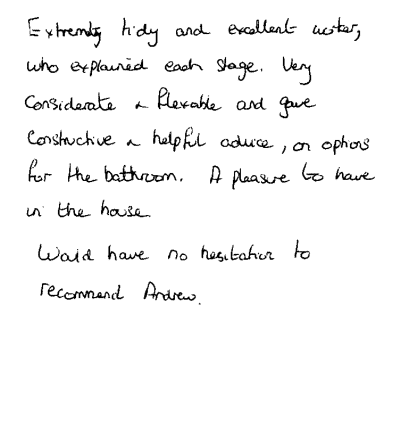 Extremely tidy and excellent worker,
who explained each stage. Very
Considerate & flexable and gave
Constructive & helpful advice, on options
for the bathroom. A pleasure to have
in the house.
Would have no hesitation to
recommend Andrew.